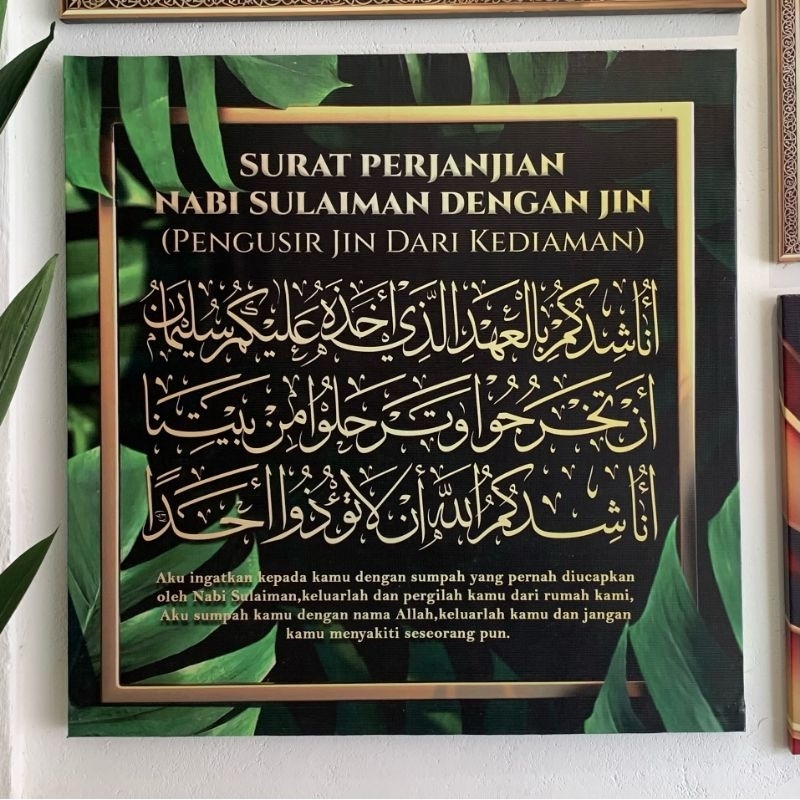 SURAT PERJANJIAN
NABI SULAIMAN DENGAN JIN
(PENGUSIR JIN DARI KEDIAMAN)
أُنَاشِدُكُمْ بِالْعَهْدِ الَّذِي أَخَذَهُ عَلَيْكُمْ سُلَيْمَانُ
أَنْ تَخْرُجُوا وَتَرْحَلُوا مِنْ بَيْتِنَا
أُنَاشِدُكُمُ اللهَ أَنْ لَا تُؤْذُوا أَحَدًا
Aku ingatkan kepada kamu dengan sumpah yang pernah diucapkan
oleh Nabi Sulaiman,keluarlah dan pergilah kamu dari rumah kami,
Aku sumpah kamu dengan nama Allah,keluarlah kamu dan jangan
kamu menyakiti seseorang pun.